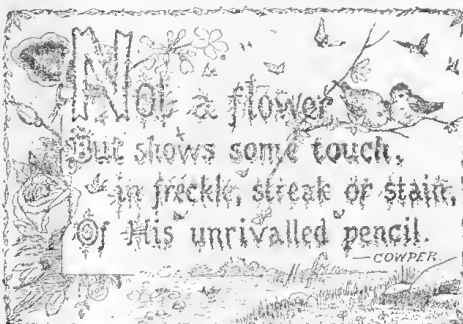 Not a flower
But shows some touch,
in freckle, streak or stain,
Of His unrivalled pencil.
—COWPER.